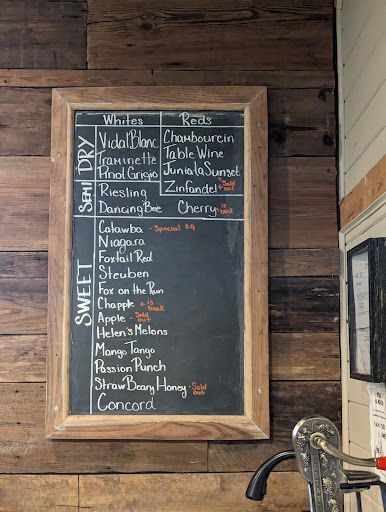 Whites Reds
DRY
Vidal Blanc Chambourcin
Traminette Table Wine
Pinot Grigio Juniata Sunset
Zinfandel ← Sold out
SEMI
Riesling
Dancing Bee Cherry ← is back
SWEET
Catawba - Special $9
Niagara
Foxtail Red
Steuben
Fox on the Run
Chapple ← is back
Apple - Sold out
Helen's Melons
Mango Tango
Passion Punch
StrawBeary Honey - Sold out
Concord